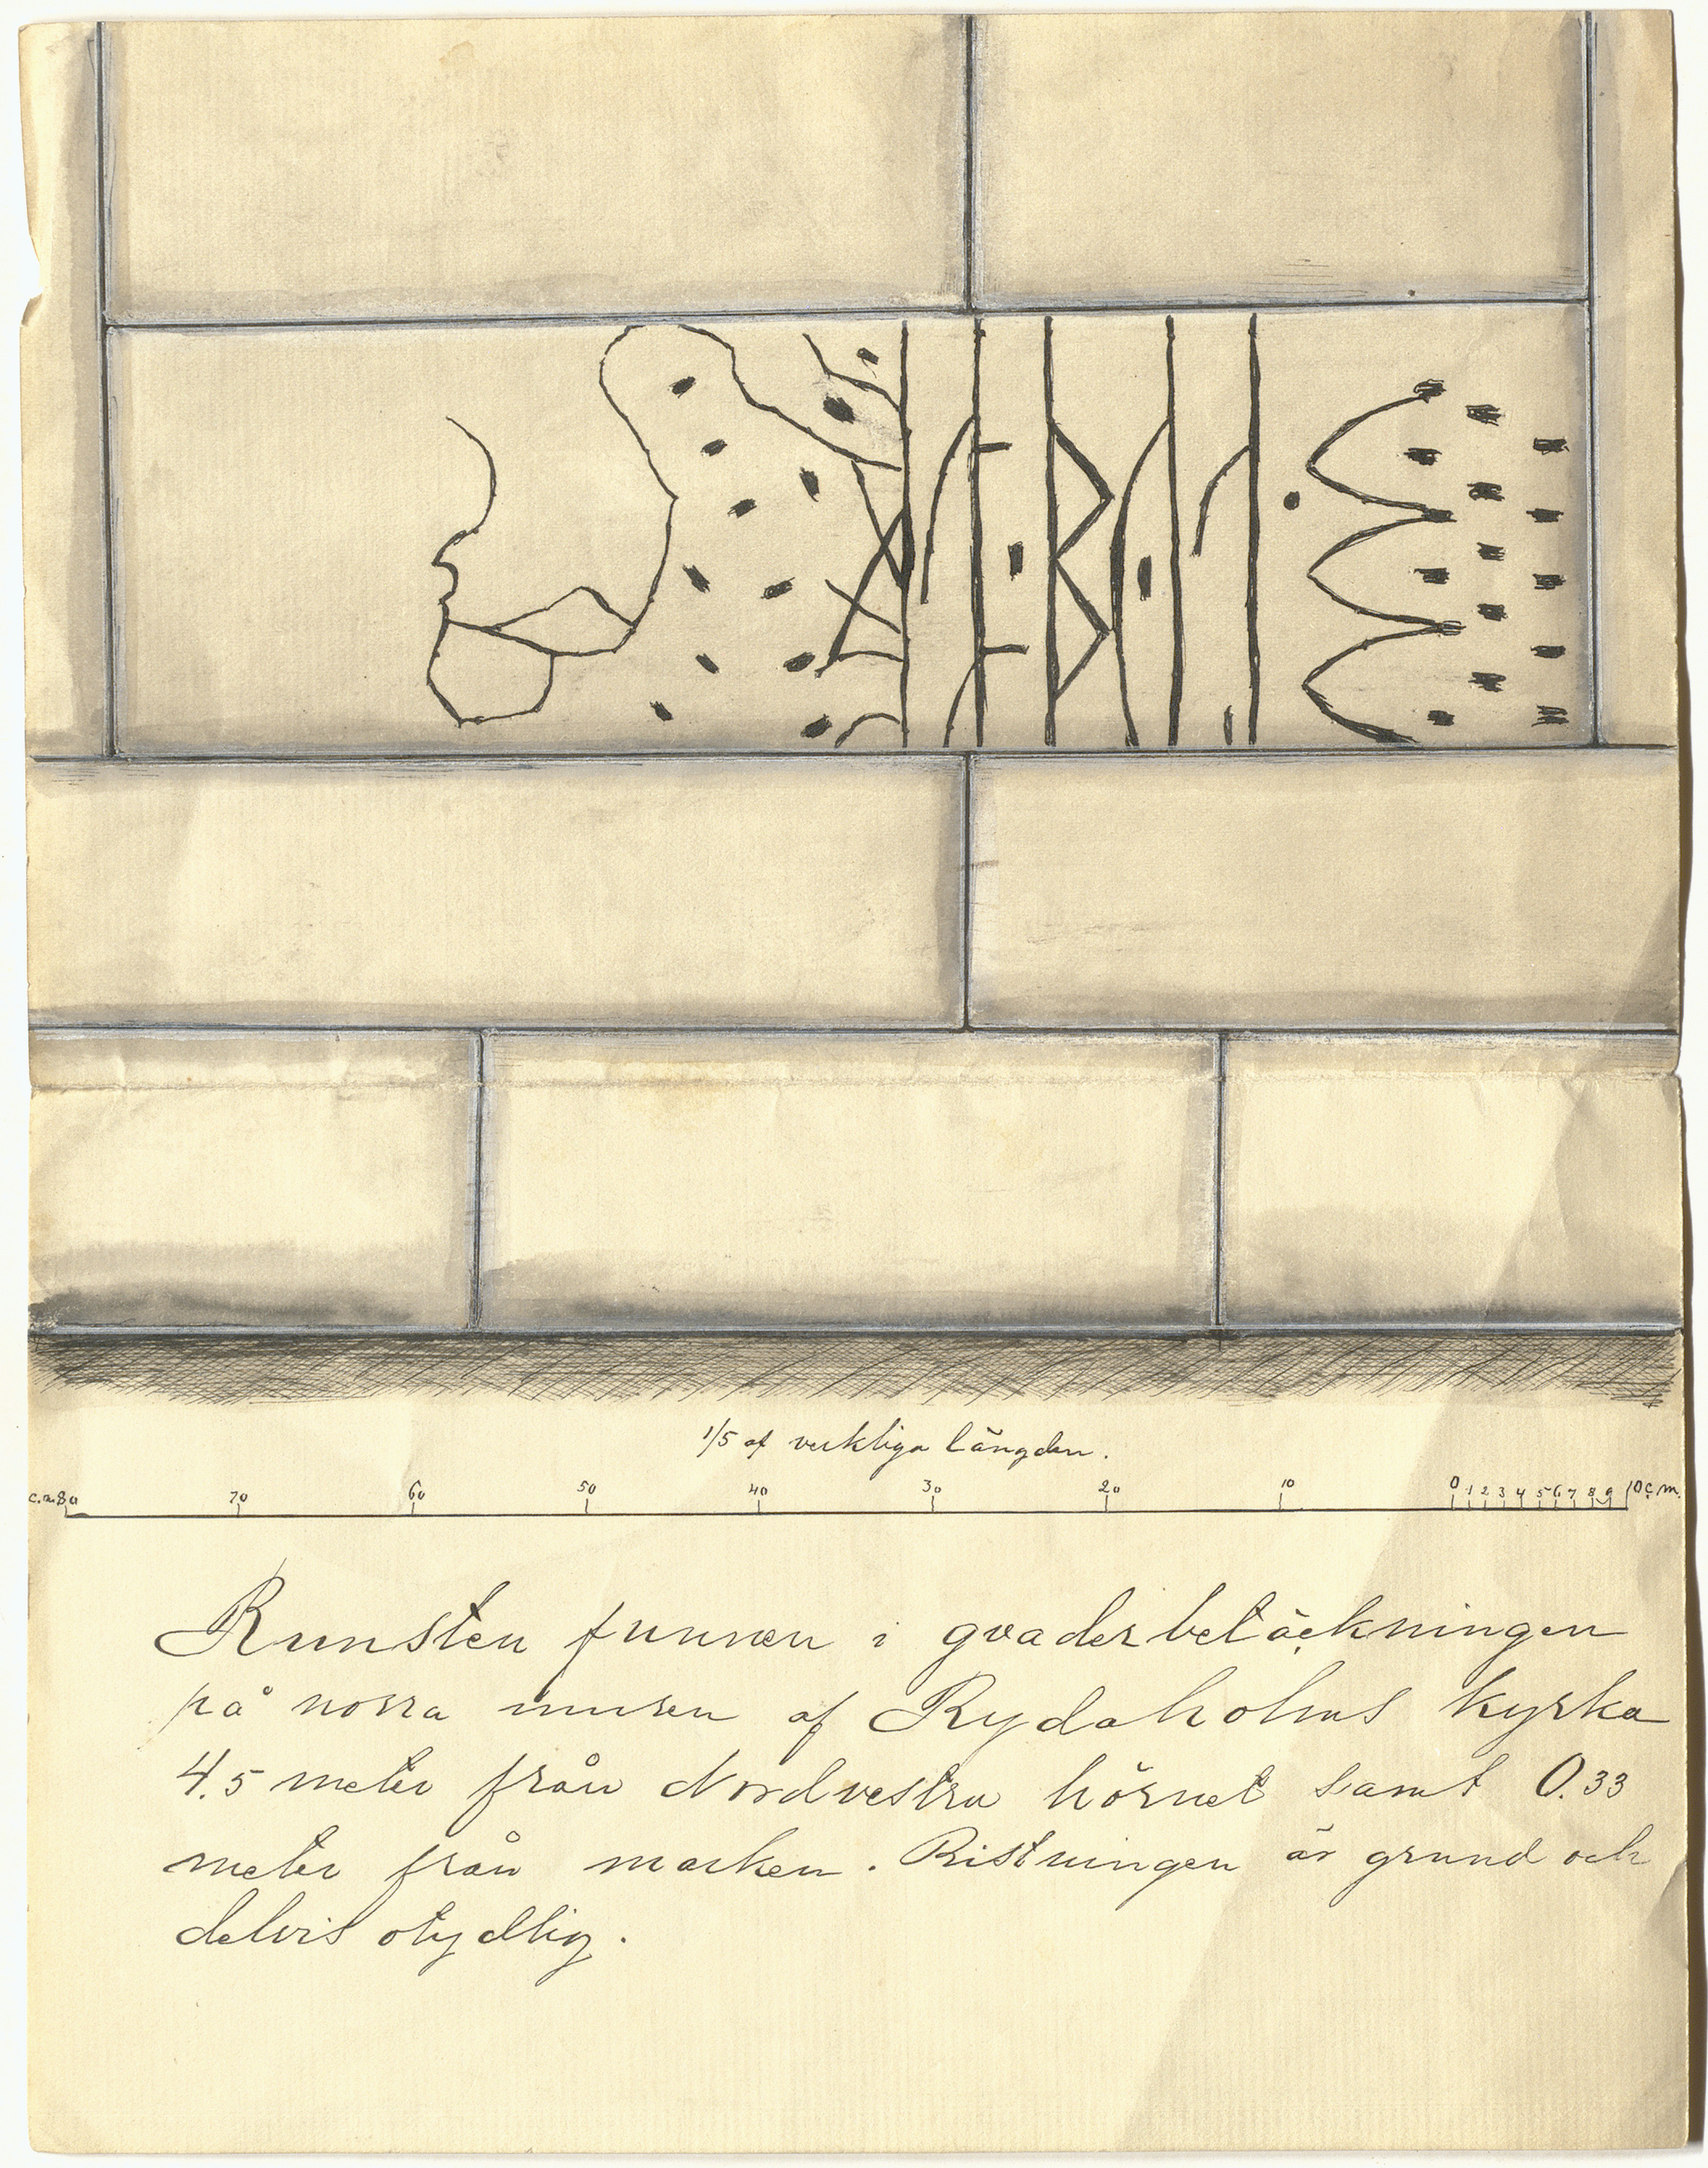 1/5 af verkliga längden.
c.a. 80 70 60 50 40 30 20 10 0 1 2 3 4 5 6 7 8 9 10 c.m.
Runsten funnen i qvaderbetäckningen
på norra muren af Rydaholms kyrka
4.5 meter från Nordvestra hörnet samt 0.33
meter från marken. Ristningen är grund och
delvis otydlig.